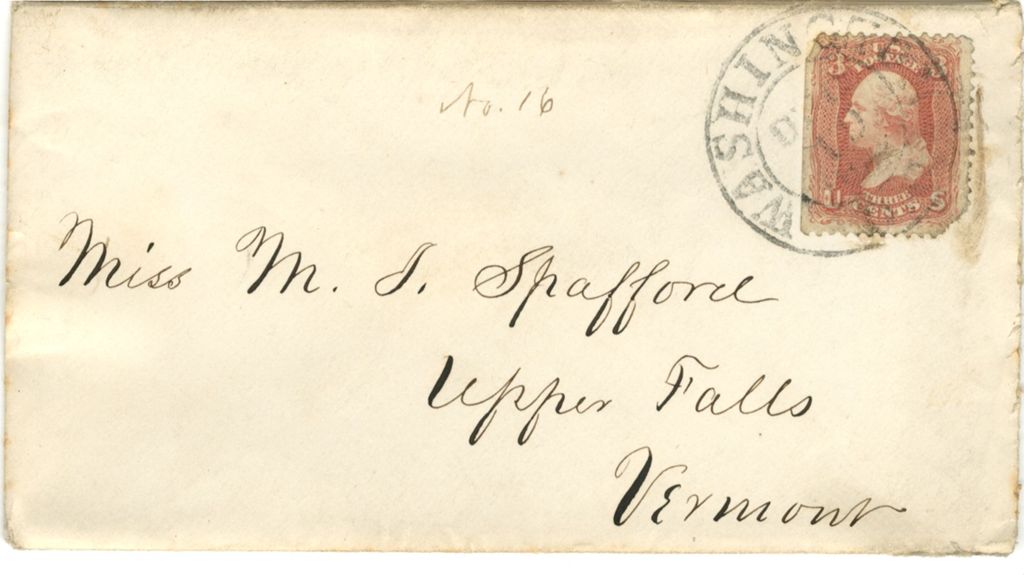 No. 16
WASHINGTON
3 U.S. 3
U S
THREE
CENTS
Miss M. J. Spafford
Upper Falls
Vermont